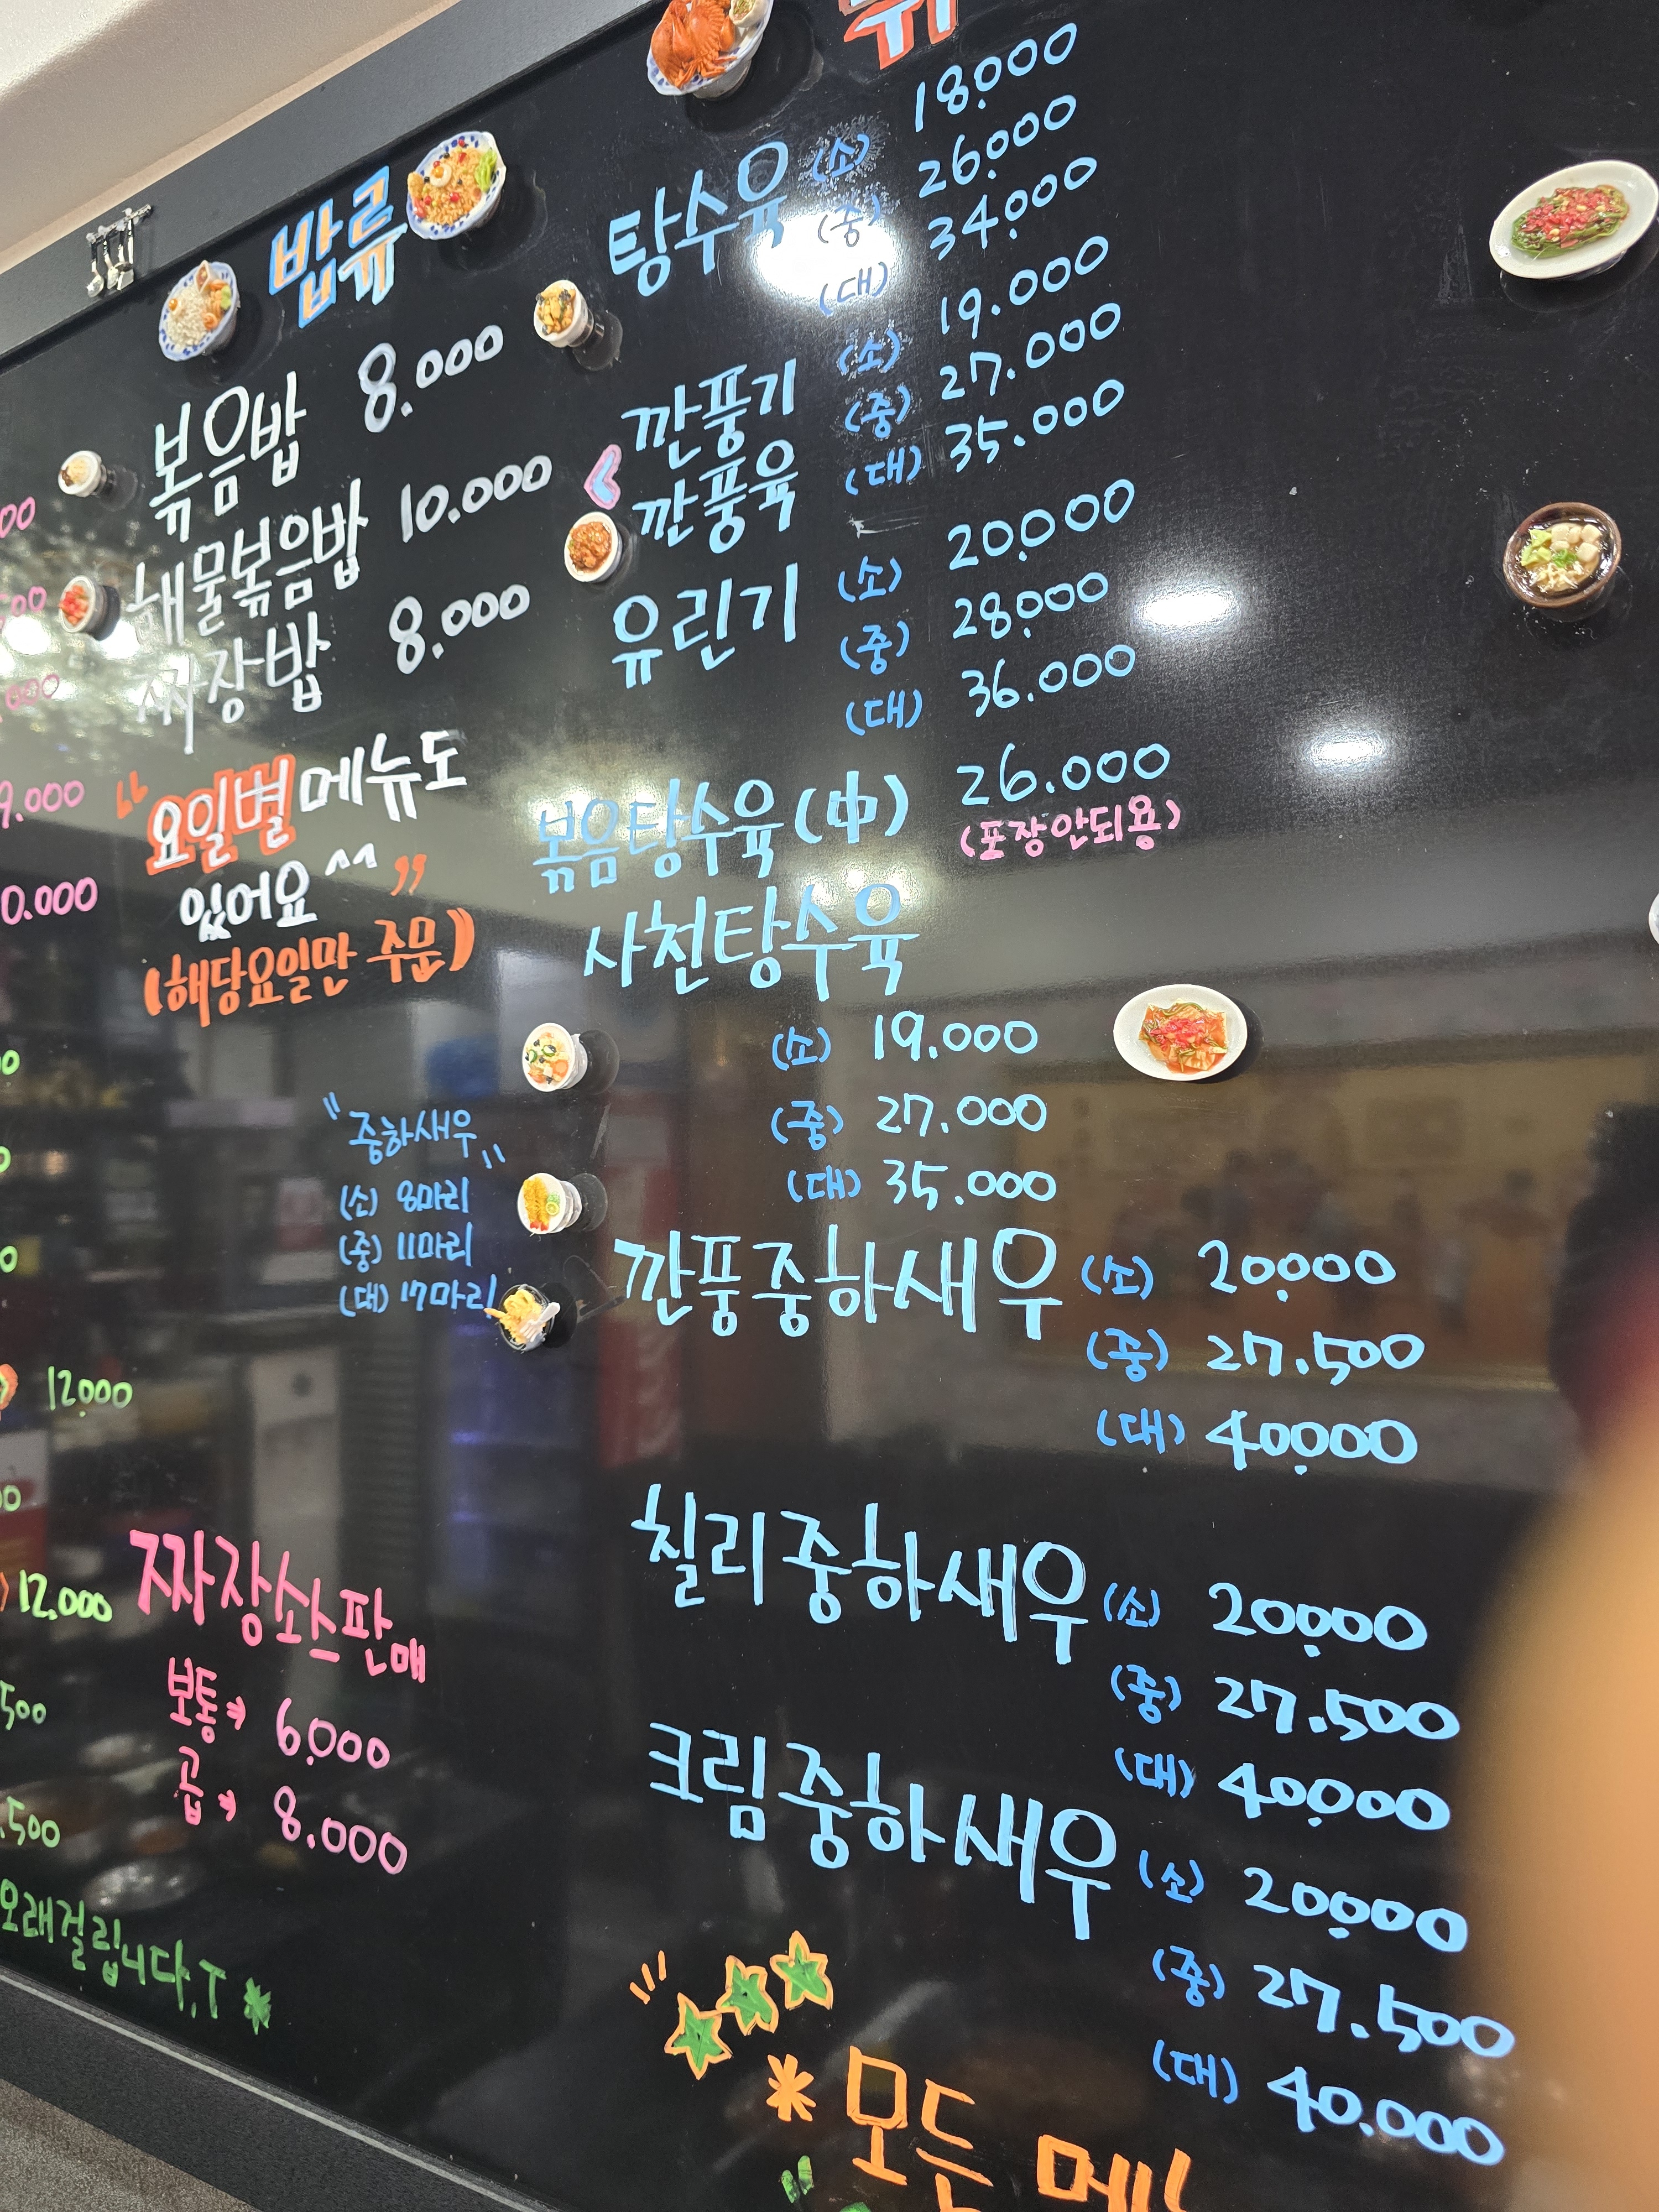 밥류
볶음밥 8.000
해물볶음밥 10.000
짜장밥 8.000
"요일별 메뉴도
있어요^^"
(해당요일만 주문)
"중하새우"
(소) 8마리
(중) 11마리
(대) 17마리
짜장소스판매
보통→ 6.000
곱→ 8.000
9.000
0.000
12.000
12.000
500
.500
오래걸립니다.T
탕수육 (소) 18.000
(중) 26.000
(대) 34.000
깐풍기 (소) 19.000
깐풍육 (중) 27.000
(대) 35.000
유린기 (소) 20.000
(중) 28.000
(대) 36.000
볶음탕수육(中) 26.000
(포장안되용)
사천탕수육
(소) 19.000
(중) 27.000
(대) 35.000
깐풍중하새우 (소) 20.000
(중) 27.500
(대) 40.000
칠리중하새우 (소) 20.000
(중) 27.500
(대) 40.000
크림중하새우 (소) 20.000
(중) 27.500
(대) 40.000
*모든 메